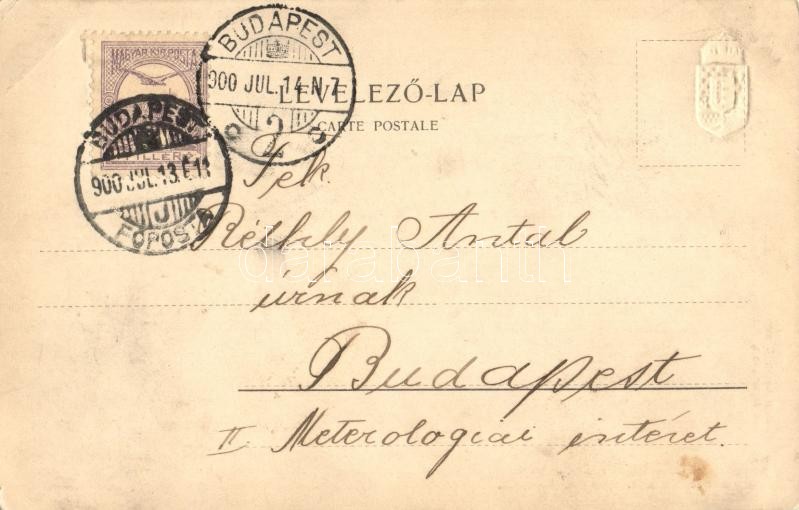 MAGYAR KIR. POSTA
FILLÉR
BUDAPEST
900 JUL. 14. N. 7
2
BUDAPEST
900 JUL. 13. É 11
FŐPOSTA
LEVELEZŐ-LAP
CARTE POSTALE
Tek.
Réthly Antal
úrnak
Budapest
II Meterologiai intéret.
darabanth